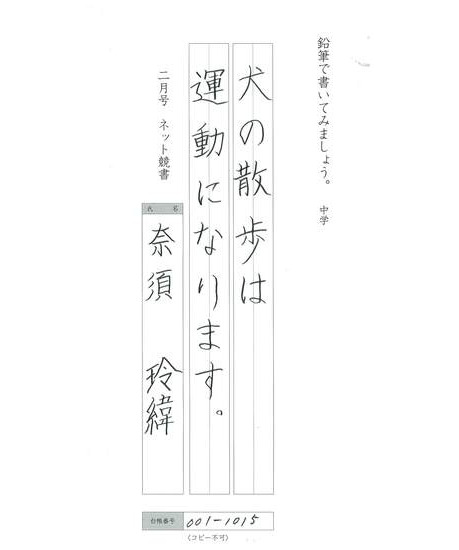 鉛筆で書いてみましょう。 中学
犬の散歩は
運動になります。
二月号 ネット競書
氏 名
奈須 玲緯
台帳番号 001-1015
(コピー不可)